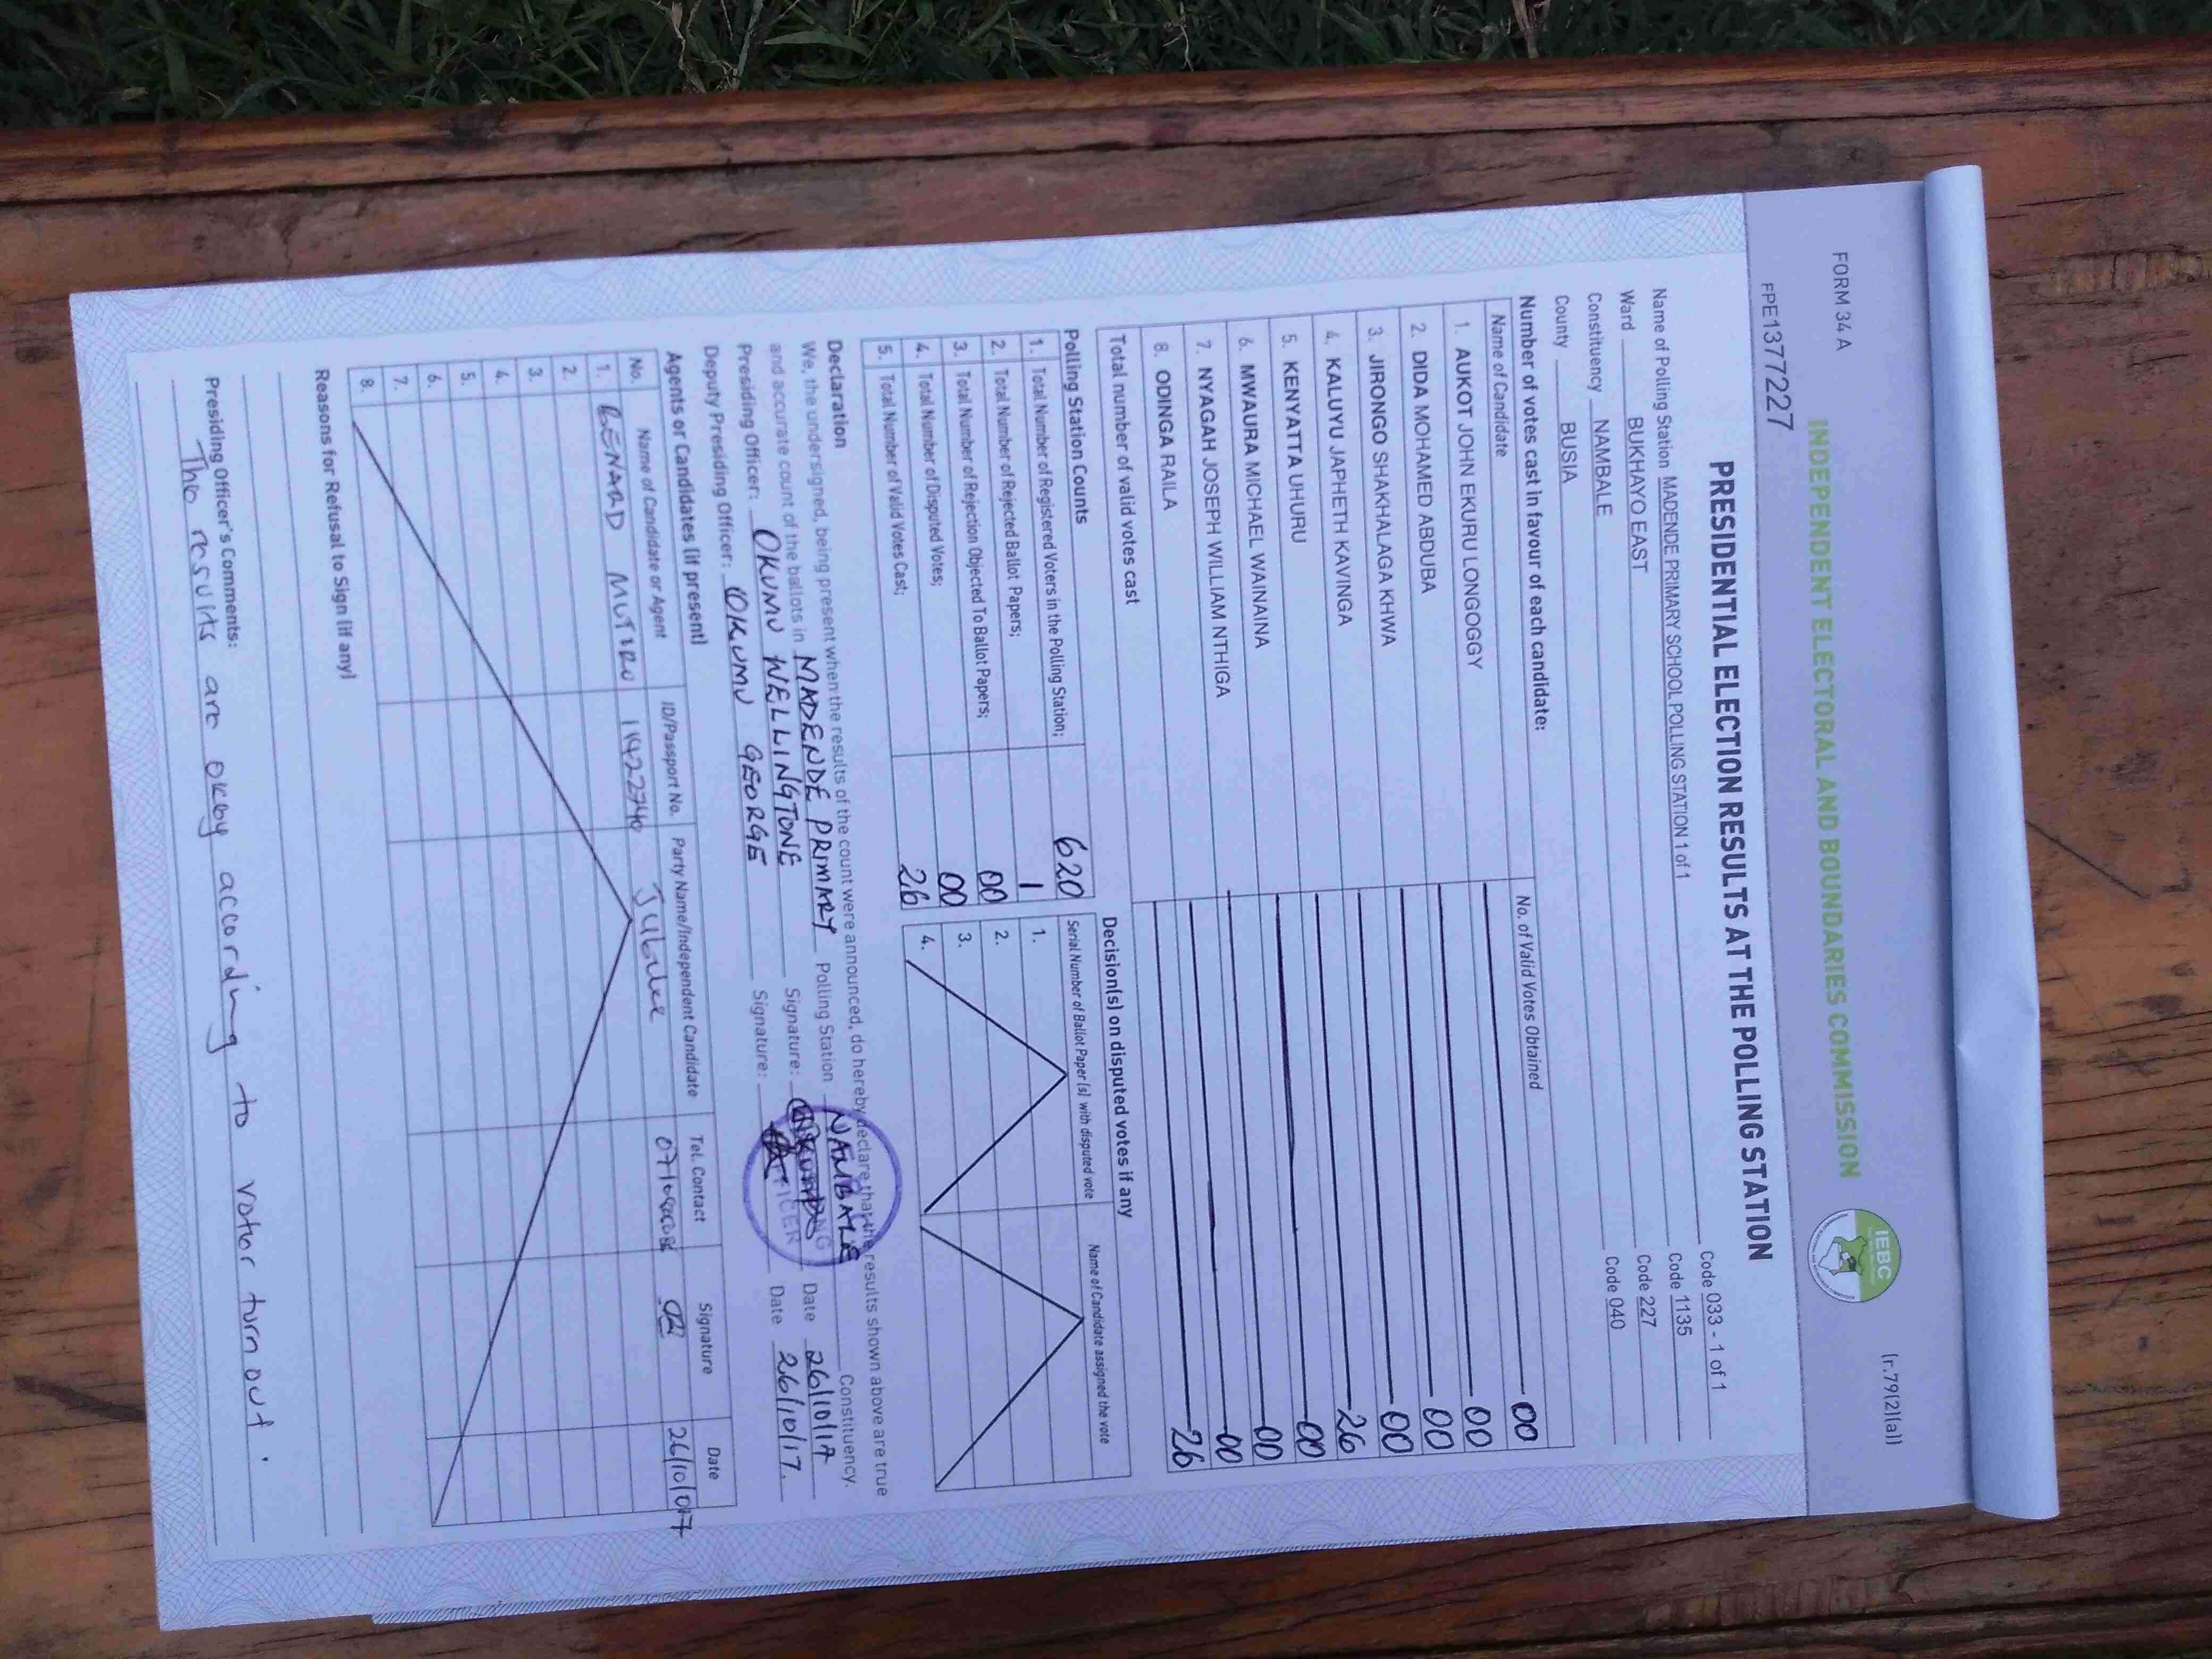 FORM 34 A
(r.79(2)(a))
INDEPENDENT ELECTORAL AND BOUNDARIES COMMISSION
IEBC
FPE1377227
PRESIDENTIAL ELECTION RESULTS AT THE POLLING STATION
Name of Polling Station MADENDE PRIMARY SCHOOL POLLING STATION 1 of 1 Code 033 - 1 of 1
Ward BUKHAYO EAST Code 1135
Constituency NAMBALE Code 227
County BUSIA Code 040
Number of votes cast in favour of each candidate:
Name of Candidate No. of Valid Votes Obtained
1. AUKOT JOHN EKURU LONGOGGY 00
2. DIDA MOHAMED ABDUBA 00
3. JIRONGO SHAKHALAGA KHWA 00
4. KALUYU JAPHETH KAVINGA 00
5. KENYATTA UHURU 26
6. MWAURA MICHAEL WAINAINA 00
7. NYAGAH JOSEPH WILLIAM NTHIGA 00
8. ODINGA RAILA 00
Total number of valid votes cast 26
Polling Station Counts
1. Total Number of Registered Voters in the Polling Station; 620
2. Total Number of Rejected Ballot Papers; 1
3. Total Number of Rejection Objected To Ballot Papers; 00
4. Total Number of Disputed Votes; 00
5. Total Number of Valid Votes Cast; 26
Decision(s) on disputed votes if any
Serial Number of Ballot Paper (s) with disputed vote Name of Candidate assigned the vote
1.
2.
3.
4.
Declaration
We, the undersigned, being present when the results of the count were announced, do hereby declare that the results shown above are true
and accurate count of the ballots in MADENDE PRIMARY Polling Station NAMBALE Constituency.
Presiding Officer: OKUMU WELLINGTONE Signature: Date 26/10/17
Deputy Presiding Officer: OKUMU GEORGE Signature: Date 26/10/17.
OFFICER
Agents or Candidates (if present)
No. Name of Candidate or Agent ID/Passport No. Party Name/Independent Candidate Tel. Contact Signature Date
1. BENARD MUTIRO 11422740 Jubilee 26/10/017
2.
3.
4.
5.
6.
7.
8.
Reasons for Refusal to Sign (if any)
Presiding Officer's Comments:
The results are okay according to voter turn out.